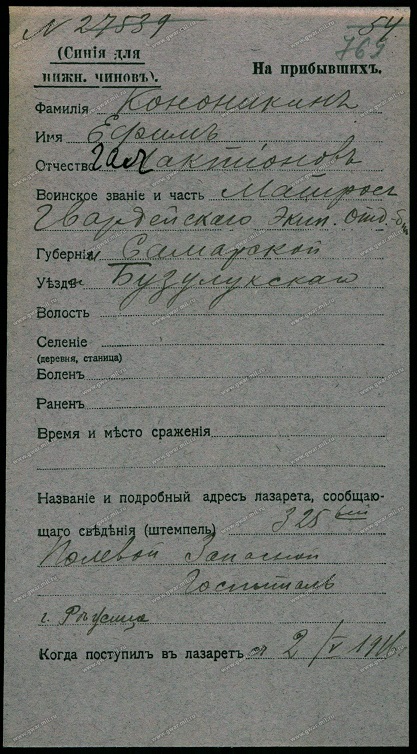 N 27839 54
769
(Синія для
нижн. чиновъ).
На прибывшихъ.
Фамилія Кононикинъ
Имя Ефимъ
Отчество Галактіоновъ
Воинское званіе и часть Матрос
Гвардейскаго Экип. Отд.
Губернія Самарской
Уѣздъ Бузулукскаго
Волость
Селеніе
(деревня, станица)
Боленъ
Раненъ
Время и мѣсто сраженія
Названіе и подробный адресъ лазарета, сообщаю-
щаго свѣдѣнія (штемпель) 325 ый
Полевой Запасной
Госпиталь
г.
Когда поступилъ въ лазаретъ 2/V 1916 г.